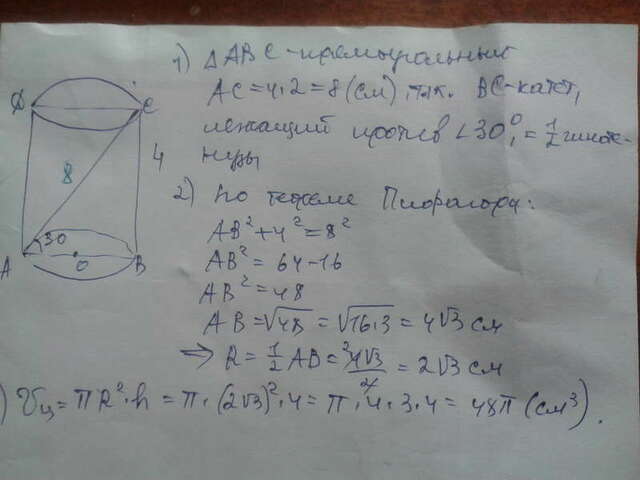 1) △ABC - прямоугольный
AC = 4·2 = 8 (см), т.к. BC-катет,
лежащий против ∠30°, = 1/2 гипоте-
нузы
2) по теореме Пифагора:
AB² + 4² = 8²
AB² = 64 - 16
AB² = 48
AB = √48 = √16·3 = 4√3 см
⇒ R = 1/2 AB = 4√3/2 = 2√3 см
) Vц = πR²·h = π·(2√3)²·4 = π·4·3·4 = 48π (см³).
D C
8 4
30
A O B